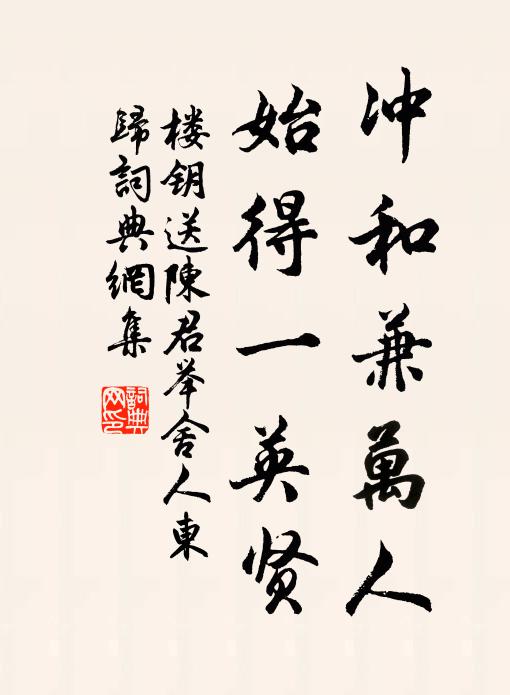 冲和兼萬人
始得一英贤
楼钥送陳君举舍人東
歸詞典網集
詞典网印